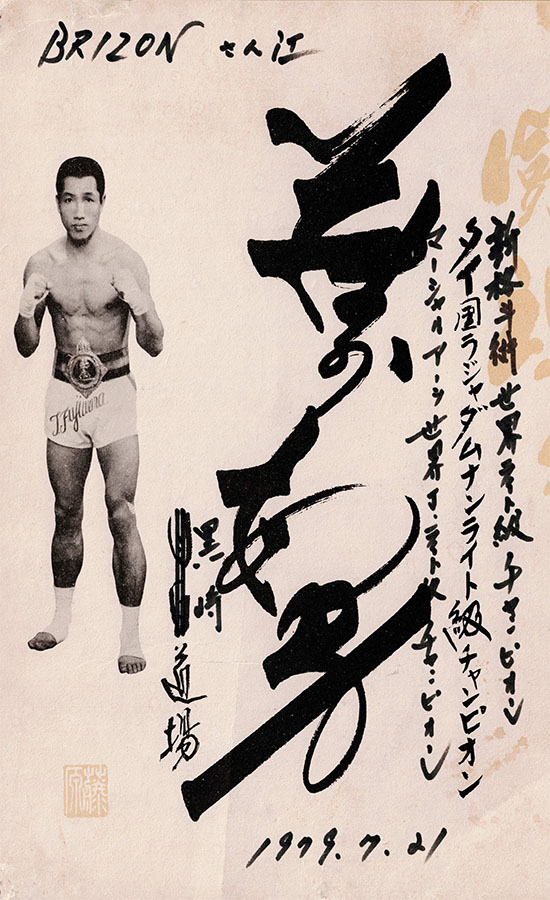 BRIZON さん江
新格斗術 世界ライト級チャンピオン
タイ国ラジャダムナンライト級チャンピオン
マーシャルアーツ 世界J・ライト級チャンピオン
黒崎
道場
T. Fujiwara
藤原
1979.7.21